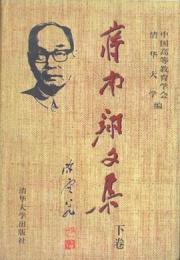 蒋南翔文集
下卷
中国高等教育学会
清华大学 编
陈云题
清华大学出版社